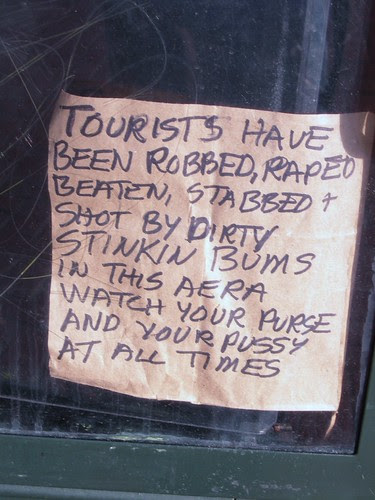 TOURISTS HAVE
BEEN ROBBED, RAPED
BEATEN, STABBED +
SHOT BY DIRTY
STINKIN BUMS
IN THIS AERA
WATCH YOUR PURSE
AND YOUR PUSSY
AT ALL TIMES